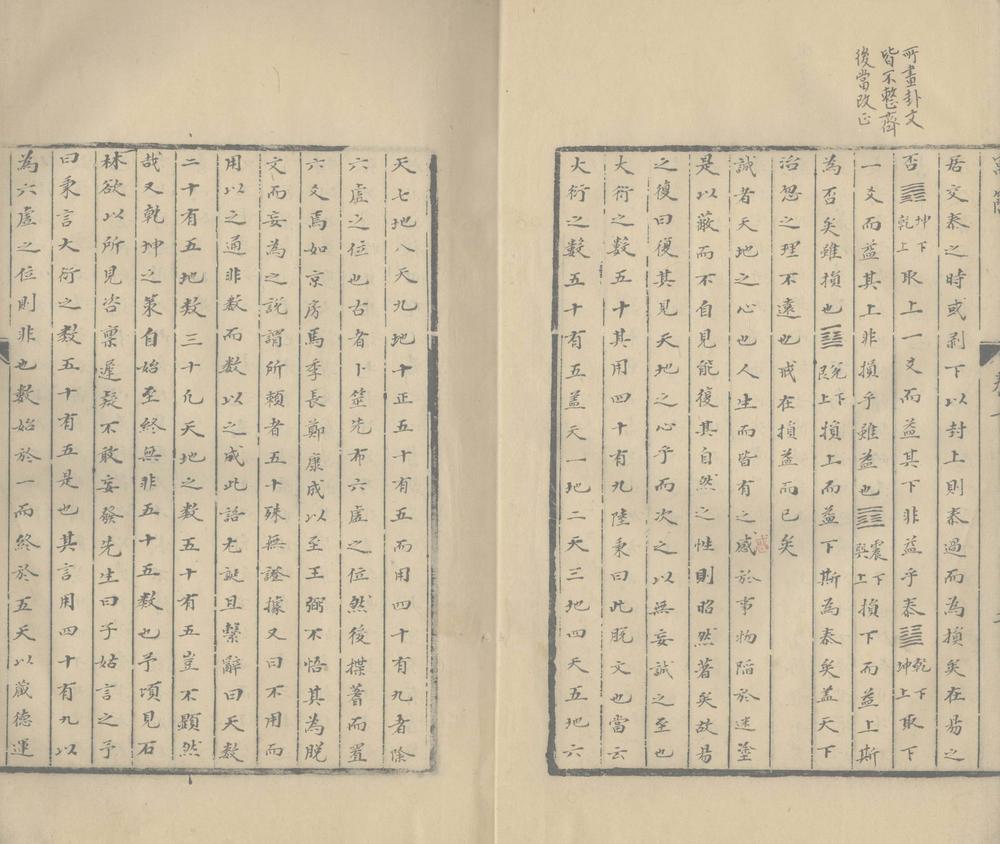 所畫卦文
皆不整齊
後當改正
居交泰之時或剥下以封上則泰過而為損矣在易之
否坤下乾上取上一爻而益其下非益乎泰乾下坤上取下
一爻而益其上非損乎雖益也震下巽上損下而益上斯
為否矣雖損也兌下艮上損上而益下斯為泰矣蓋天下
治忽之理不遠也戒在損益而已矣
誠者天地之心也人生而皆有之感於事物陷於迷塗
感
是以蔽而不自見能復其自然之性則昭然著矣故易
之復曰復其見天地之心乎而次之以無妄誠之至也
大衍之數五十其用四十有九陸秉曰此脱文也當云
大衍之數五十有五盖天一地二天三地四天五地六
天七地八天九地十正五十有五而用四十有九者除
六虛之位也古者卜筮先布六虛之位然後揲蓍而置
六爻焉如京房馬季長鄭康成以至王弼不悟其為脱
文而妄為之説謂所賴者五十殊無證據又曰不用而
用以之通非数而數以之成此語尤誕且繫辭曰天數
二十有五地數三十凡天地之數五十有五豈不顯然
哉又乾坤之策自始至終無非五十五數也予頃見石
林欲以所見咨稟遲疑不敢妄發先生曰子姑言之予
曰秉言大衍之數五十有五是也其言用四十有九以
為六虛之位則非也數始於一而終於五天以藏德運